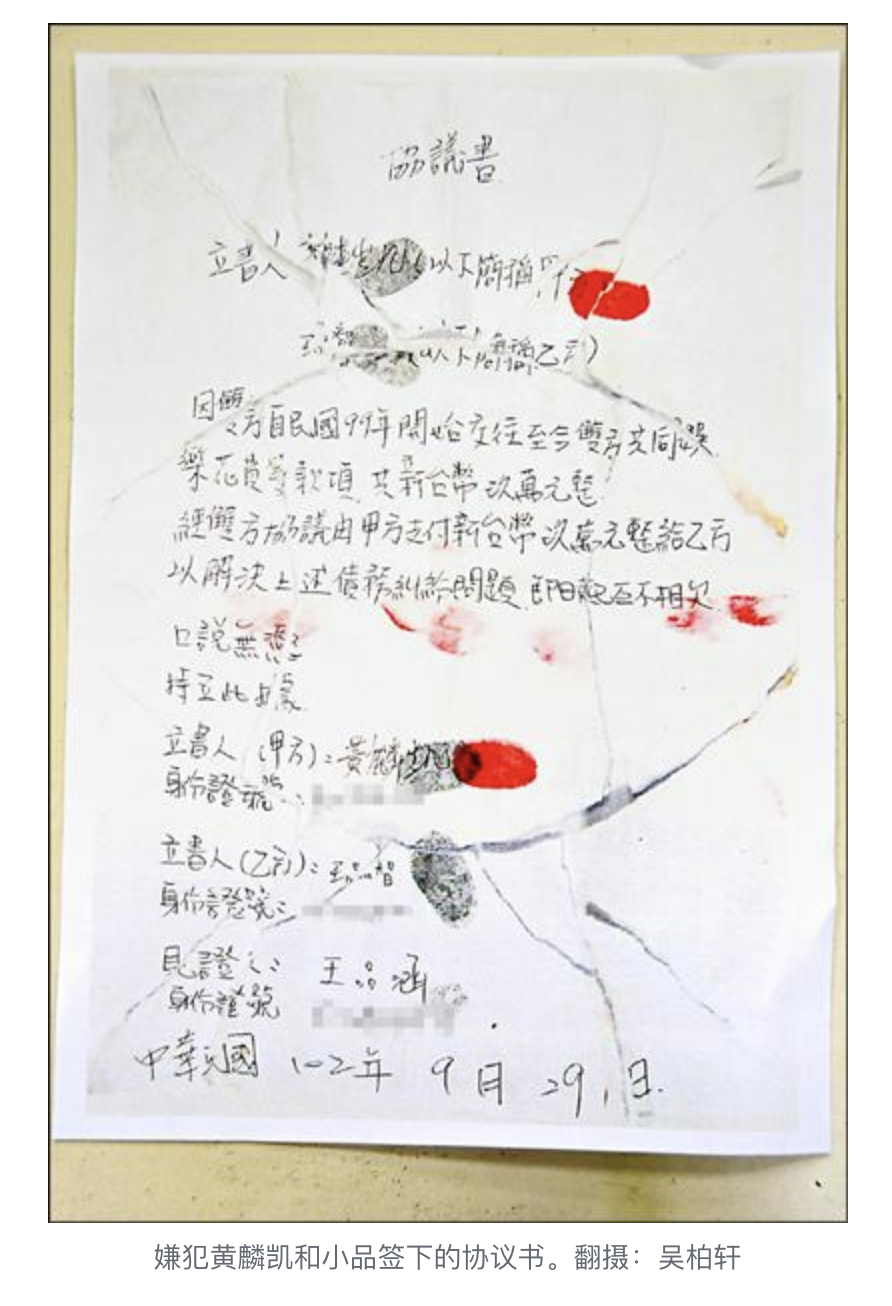 協議書
立書人 以下簡稱甲
以下簡稱乙方)
因雙方自民國99年開始交往至今雙方共同娛
樂花費等款項 共新台幣 玖萬元整
經雙方協議由甲方支付新台幣玖萬元整給乙方
以解決上述債務糾紛問題 即日起互不相欠
口說無憑
特立此據
立書人(甲方):黃麟凱
身份證號:
立書人(乙方):王品智
身份證號:
見證人:王品涵
身份證號
中華民國 一0二年 9月29日.
嫌犯黄麟凯和小品签下的协议书。翻摄：吴柏轩